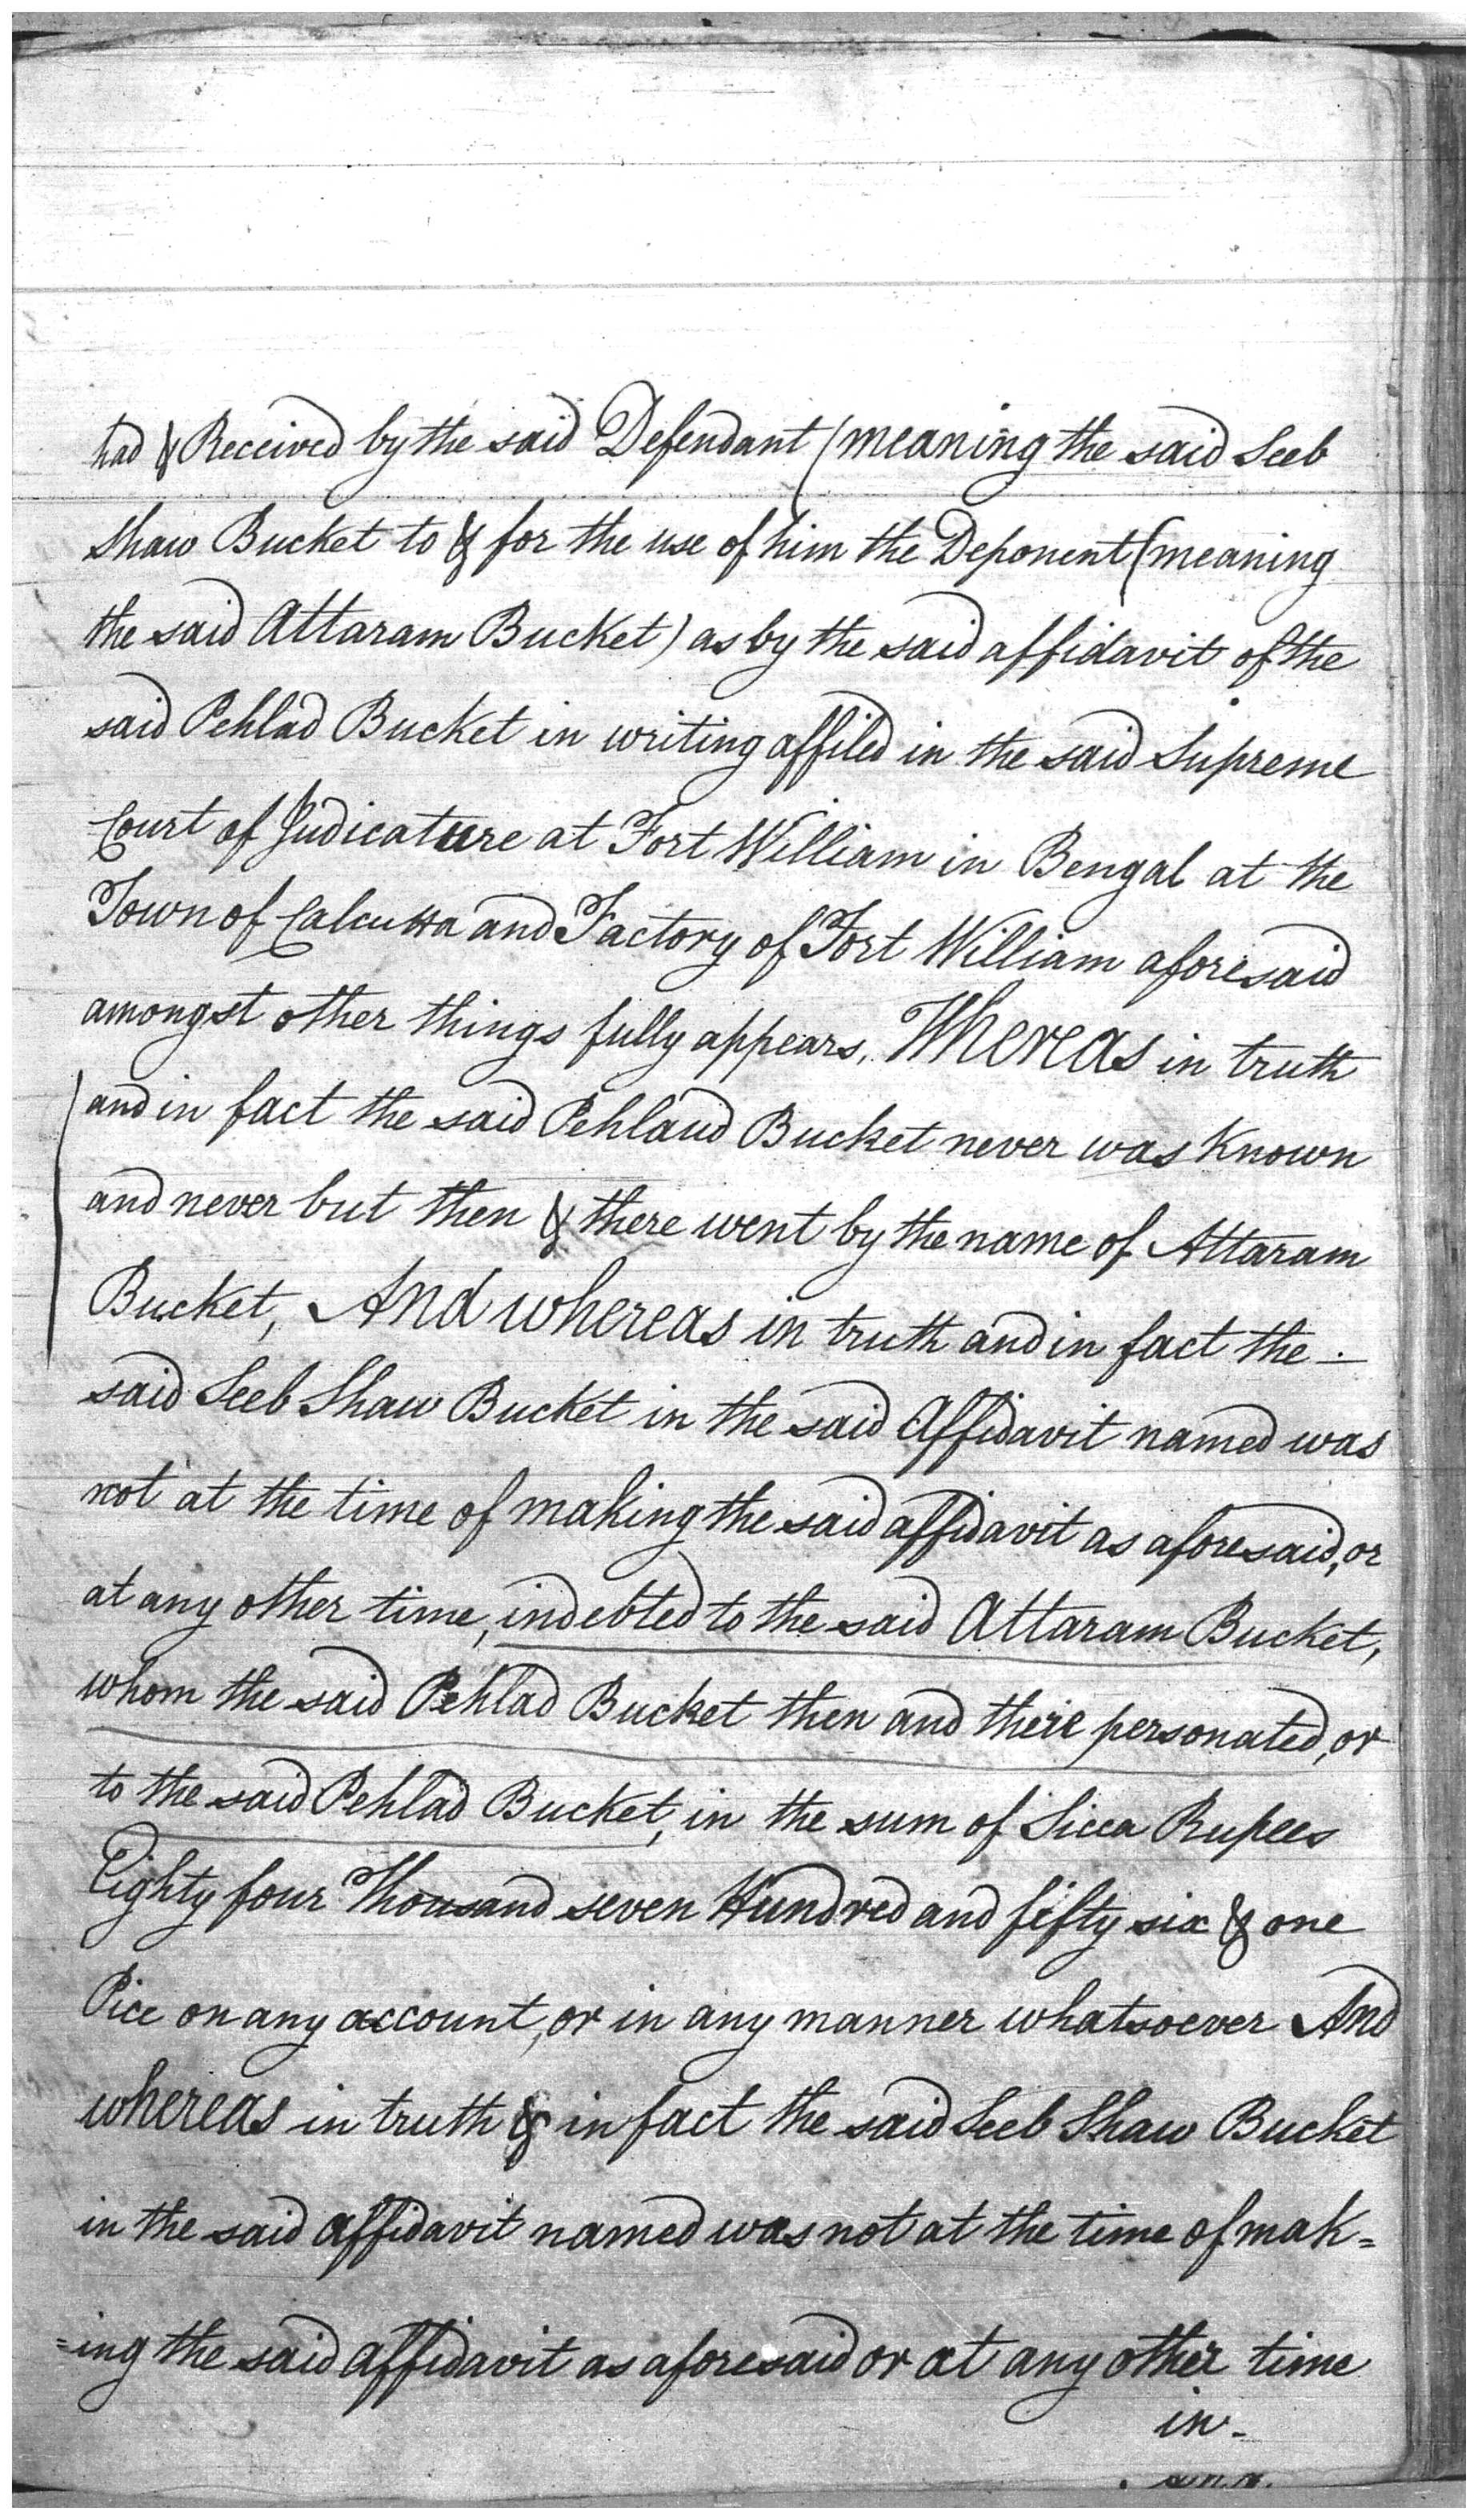 had & Received by the said Defendant (meaning the said Seeb
Shaw Bucket to & for the use of him the Deponent (meaning
the said Attaram Bucket) as by the said affidavit of the
said Pehlad Bucket in writing affiled in the said Supreme
Court of Judicature at Fort William in Bengal at the
Town of Calcutta and Factory of Fort William aforesaid
amongst other things fully appears, Whereas in truth
and in fact the said Pehlaud Bucket never was known
and never but then & there went by the name of Attaram
Bucket, And whereas in truth and in fact the -
said Seeb Shaw Bucket in the said Affidavit named was
not at the time of making the said affidavit as aforesaid, or
at any other time, indebted to the said Attaram Bucket,
whom the said Pehlad Bucket then and there personated, or
to the said Pehlad Bucket, in the sum of Sicca Rupees
Eighty four Thousand seven Hundred and fifty six & one
Pice on any account, or in any manner whatsoever And
whereas in truth & in fact the said Seeb Shaw Bucket
in the said affidavit named was not at the time of mak=
=ing the said affidavit as aforesaid or at any other time
in-